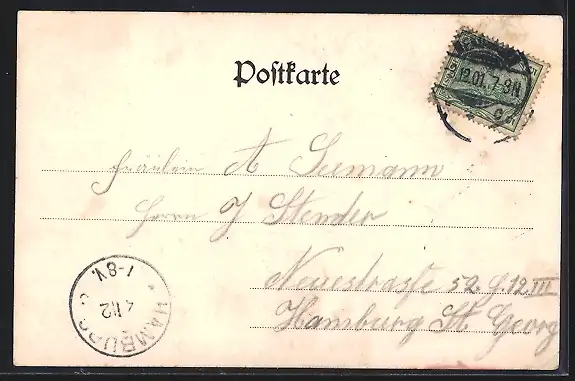 Postkarte
12.01. 7-8N
Fräulein A Seemann
Herrn J Stender
Neuestraße 52. G. 12. III
Hamburg St. Georg
HAMBURG
4 12
7-8V.